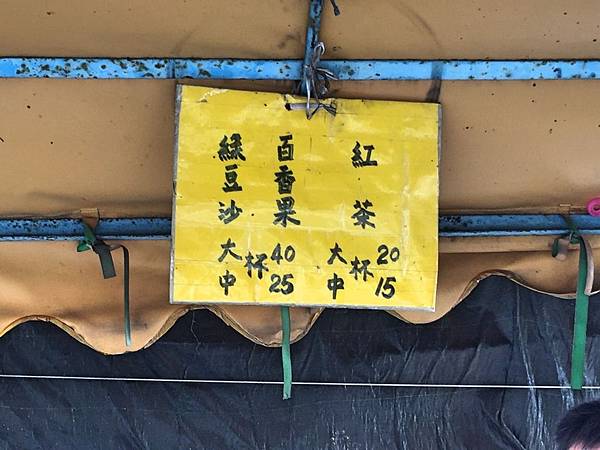 紅茶
大杯 20
中杯 15
百香果
綠豆沙
大杯 40
中杯 25